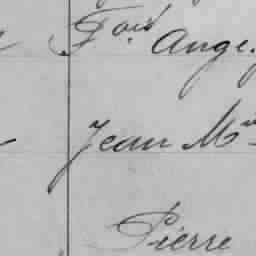 Fois Ange.
Jean Mie
Pierre